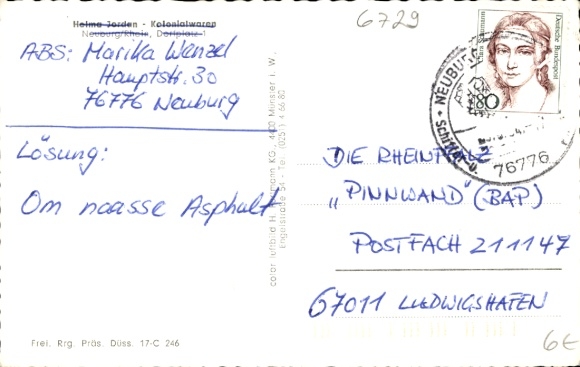 6729
Helma Jorden - Kolonialwaren
Neuburg/Rhein, Dorfplatz 1
ABS: Marika Wenzel
Hauptstr. 30
76776 Neuburg
Lösung:
Om naasse Asphalt
Clara Schumann
Deutsche Bundespost
80
NEUBURG
76776
DIE RHEINPFALZ
„PINNWAND" (BAP)
POSTFACH 211147
67011 LUDWIGSHAFEN
color luftbild H. KG, 4400 Münster i. W.
Engelstraße 54 - Tel. (0251) 4 66 80
Frei. Rrg. Präs. Düss. 17-C 246
6E